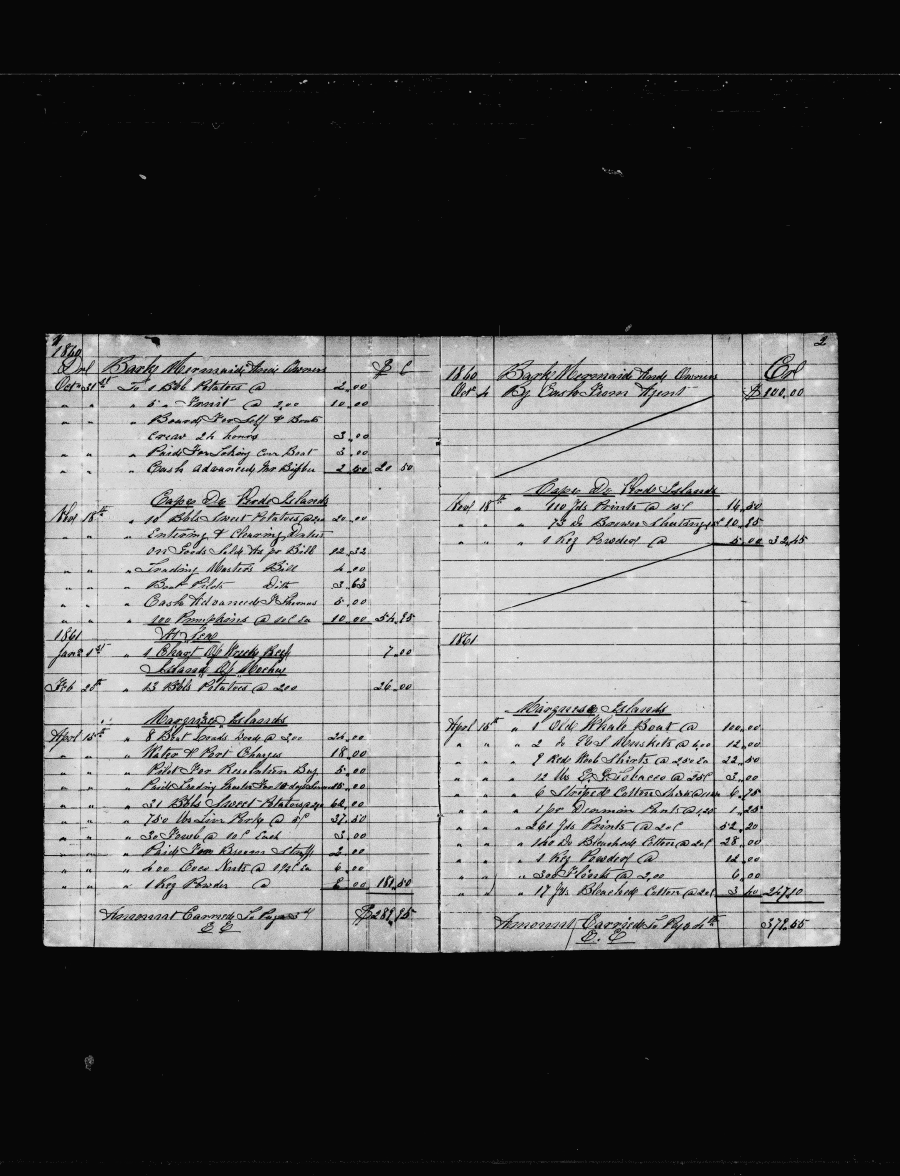 1860
Dr Bark Mermaid And Owners $ C
Octo 31st To 1 Bbl Potatoes @ 2.00
" " " 5 " Fruit @ 2,00 10.00
" " " Board For Self & Boats
crew 24 hours 3.00
" " " Paid For Taking Care Boat 3.00
" " " Cash advanced 2.50 20 50
Cape De Verde Islands
Nov 18th " 10 Bbls Sweet Potatoes @ 2,00 20.00
" " " Entering & Clearing Duties
on Goods Sold As pr Bill 12.32
" " " Trading Masters Bill 4.00
" " " Boat Pilots Ditto 3.63
" " " Cash Advanced 5.00
" " " 100 Pumpkins @ 10c Ea 10.00 54.95
1861 At Sea
Jan 1st " 1 Of Beef 7.00
Island Of Mocha
Feb 20th " 13 Bbls Potatoes @ 200 26.00
Marquise Islands
Aprl 15th " 8 Boat Loads Wood @ 3,00 24.00
" " " Water & Port Charges 18.00
" " " Pilot For Resolution Bay 5.00
" " " Paid Trading Master For 10 days 15.00
" " " 31 Bbls Sweet Potatoes @ 2,00 62.00
" " " 750 @ 5c 37.50
" " " 30 Fowls @ 10c Each 3.00
" " " Paid For Broom Stuff 2.00
" " " 400 Coco Nuts @ 1½c Ea 6.00
" " " 1 Keg Powder @ 00 181.50
Amount Carried To Page 3d $289.95
E E
2
1860 Bark Mermaid And Owners Cr
Oct 4 By Cash From Agent $100.00
Cape De Verde Islands
Nov 18th " 110 Yds Prints @ 15c 16.50
" " " 73 Do Brown Sheeting 15c 10.95
" " " 1 Keg Powder @ 5.00 32.45
1861
Marquise Islands
Aprl 15th " 1 Old Whale Boat @ 100.00
" " " 2 Do Muskets @ 6,00 12.00
" " " 9 Red Wool Shirts @ 2.50 Ea 22.50
" " " 12 lbs Tobacco @ 25c 3.00
" " " 6 Striped Cotton Shirts @ 6.75
" " " 1 pr Denmin Pants @ 1,25 1.25
" " " 261 Yds Prints @ 20c 52.20
" " " 140 Do Bleached Cotton @ 20c 28.00
" " " 1 Keg Powder @ 12.00
" " " 300 Flints @ 2,00 6.00
" " " 17 Yds Bleached Cotton @ 20c 3.40 247.10
Amount Carried To Page 4th 379.55
E. E